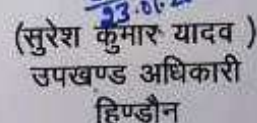 23.01.2
(सुरेश कुमार यादव )
उपखण्ड अधिकारी
हिण्डौन